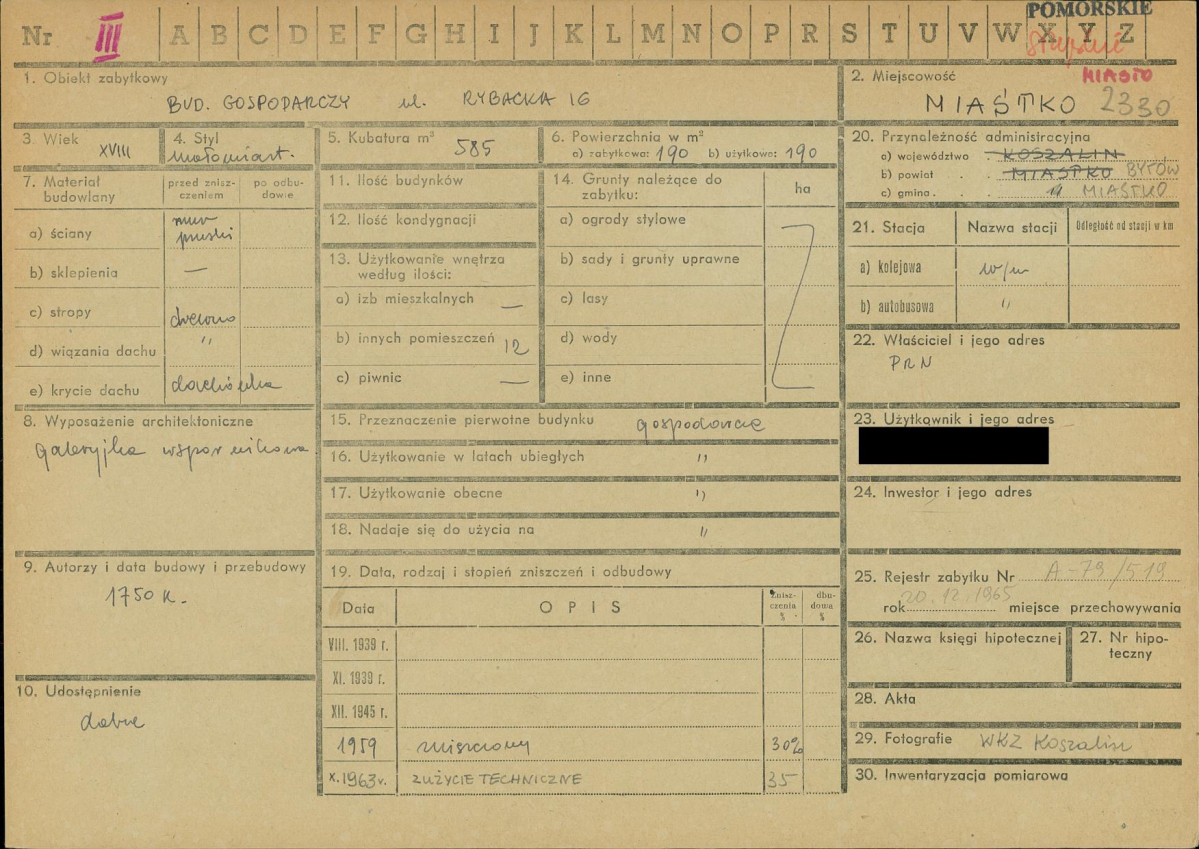 POMORSKIE
Nr III A B C D E F G H I J K L M N O P R S T U V W X Y Z
Słupskie
MIASTO
1. Obiekt zabytkowy
BUD. GOSPODARCZY ul. RYBACKA 16
2. Miejscowość
MIASTKO 2330
3. Wiek XVIII
4. Styl
małomiast.
5. Kubatura m³ 585
6. Powierzchnia w m²
a) zabytkowa: 190 b) użytkowa: 190
7. Materiał budowlany
przed zniszczeniem
po odbudowie
a) ściany mur pruski
b) sklepienia —
c) stropy drewno
d) wiązania dachu "
e) krycie dachu dachówka
8. Wyposażenie architektoniczne
galeryjka wspornikowa
9. Autorzy i data budowy i przebudowy
1750 r.
10. Udostępnienie
dobre
11. Ilość budynków
12. Ilość kondygnacji
13. Użytkowanie wnętrza
według ilości:
a) izb mieszkalnych —
b) innych pomieszczeń 12
c) piwnic —
14. Grunty należące do
zabytku:
ha
a) ogrody stylowe
b) sady i grunty uprawne
c) lasy
d) wody
e) inne
15. Przeznaczenie pierwotne budynku gospodarcze
16. Użytkowanie w latach ubiegłych "
17. Użytkowanie obecne "
18. Nadaje się do użycia na "
19. Data, rodzaj i stopień zniszczeń i odbudowy
Data OPIS
Zniszczenia %
dbudowa %
VIII. 1939 r.
XI. 1939 r.
XII. 1945 r.
1959 zniszczony 30%
X.1963 r. ZUŻYCIE TECHNICZNE 35
20. Przynależność administracyjna
a) województwo . KOSZALIN
b) powiat . . MIASTKO BYTÓW
c) gmina . . MIASTKO
21. Stacja
Nazwa stacji
Odległość od stacji w km
a) kolejowa w/m
b) autobusowa "
22. Właściciel i jego adres
PRN
23. Użytkownik i jego adres
24. Inwestor i jego adres
25. Rejestr zabytku Nr A-79/519
20.12.1965
rok miejsce przechowywania
26. Nazwa księgi hipotecznej
27. Nr hipoteczny
28. Akta
29. Fotografie WKZ Koszalin
30. Inwentaryzacja pomiarowa